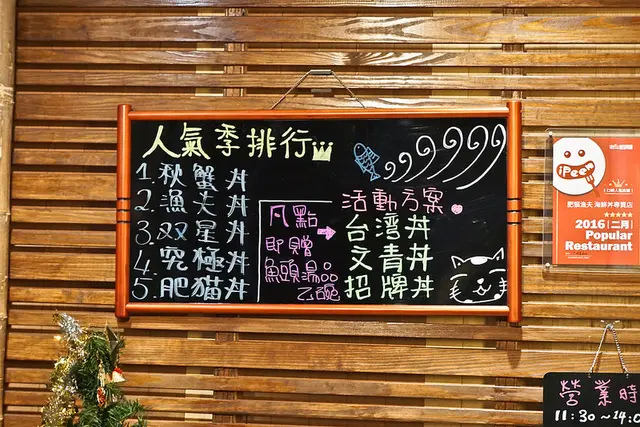 人氣季排行
1.秋蟹丼
2.漁夫丼
3.双星丼
4.究極丼
5.肥猫丼
凡點
即贈
魚頭湯品
乙碗
活動方案
台湾丼
文青丼
招牌丼
iPeen
肥猫漁夫 海鮮丼專賣店
★★★★★
2016 [二月]
Popular
Restaurant
營業時
11:30~14:0